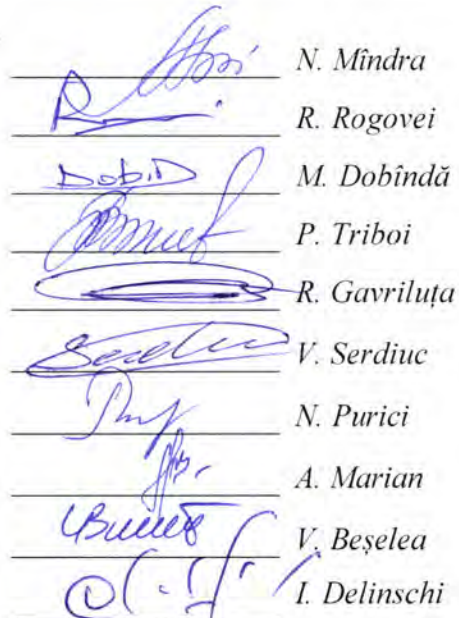 N. Mîndra
R. Rogovei
DobîD M. Dobîndă
P. Triboi
R. Gavriluța
V. Serdiuc
N. Purici
A. Marian
V. Beșelea
I. Delinschi